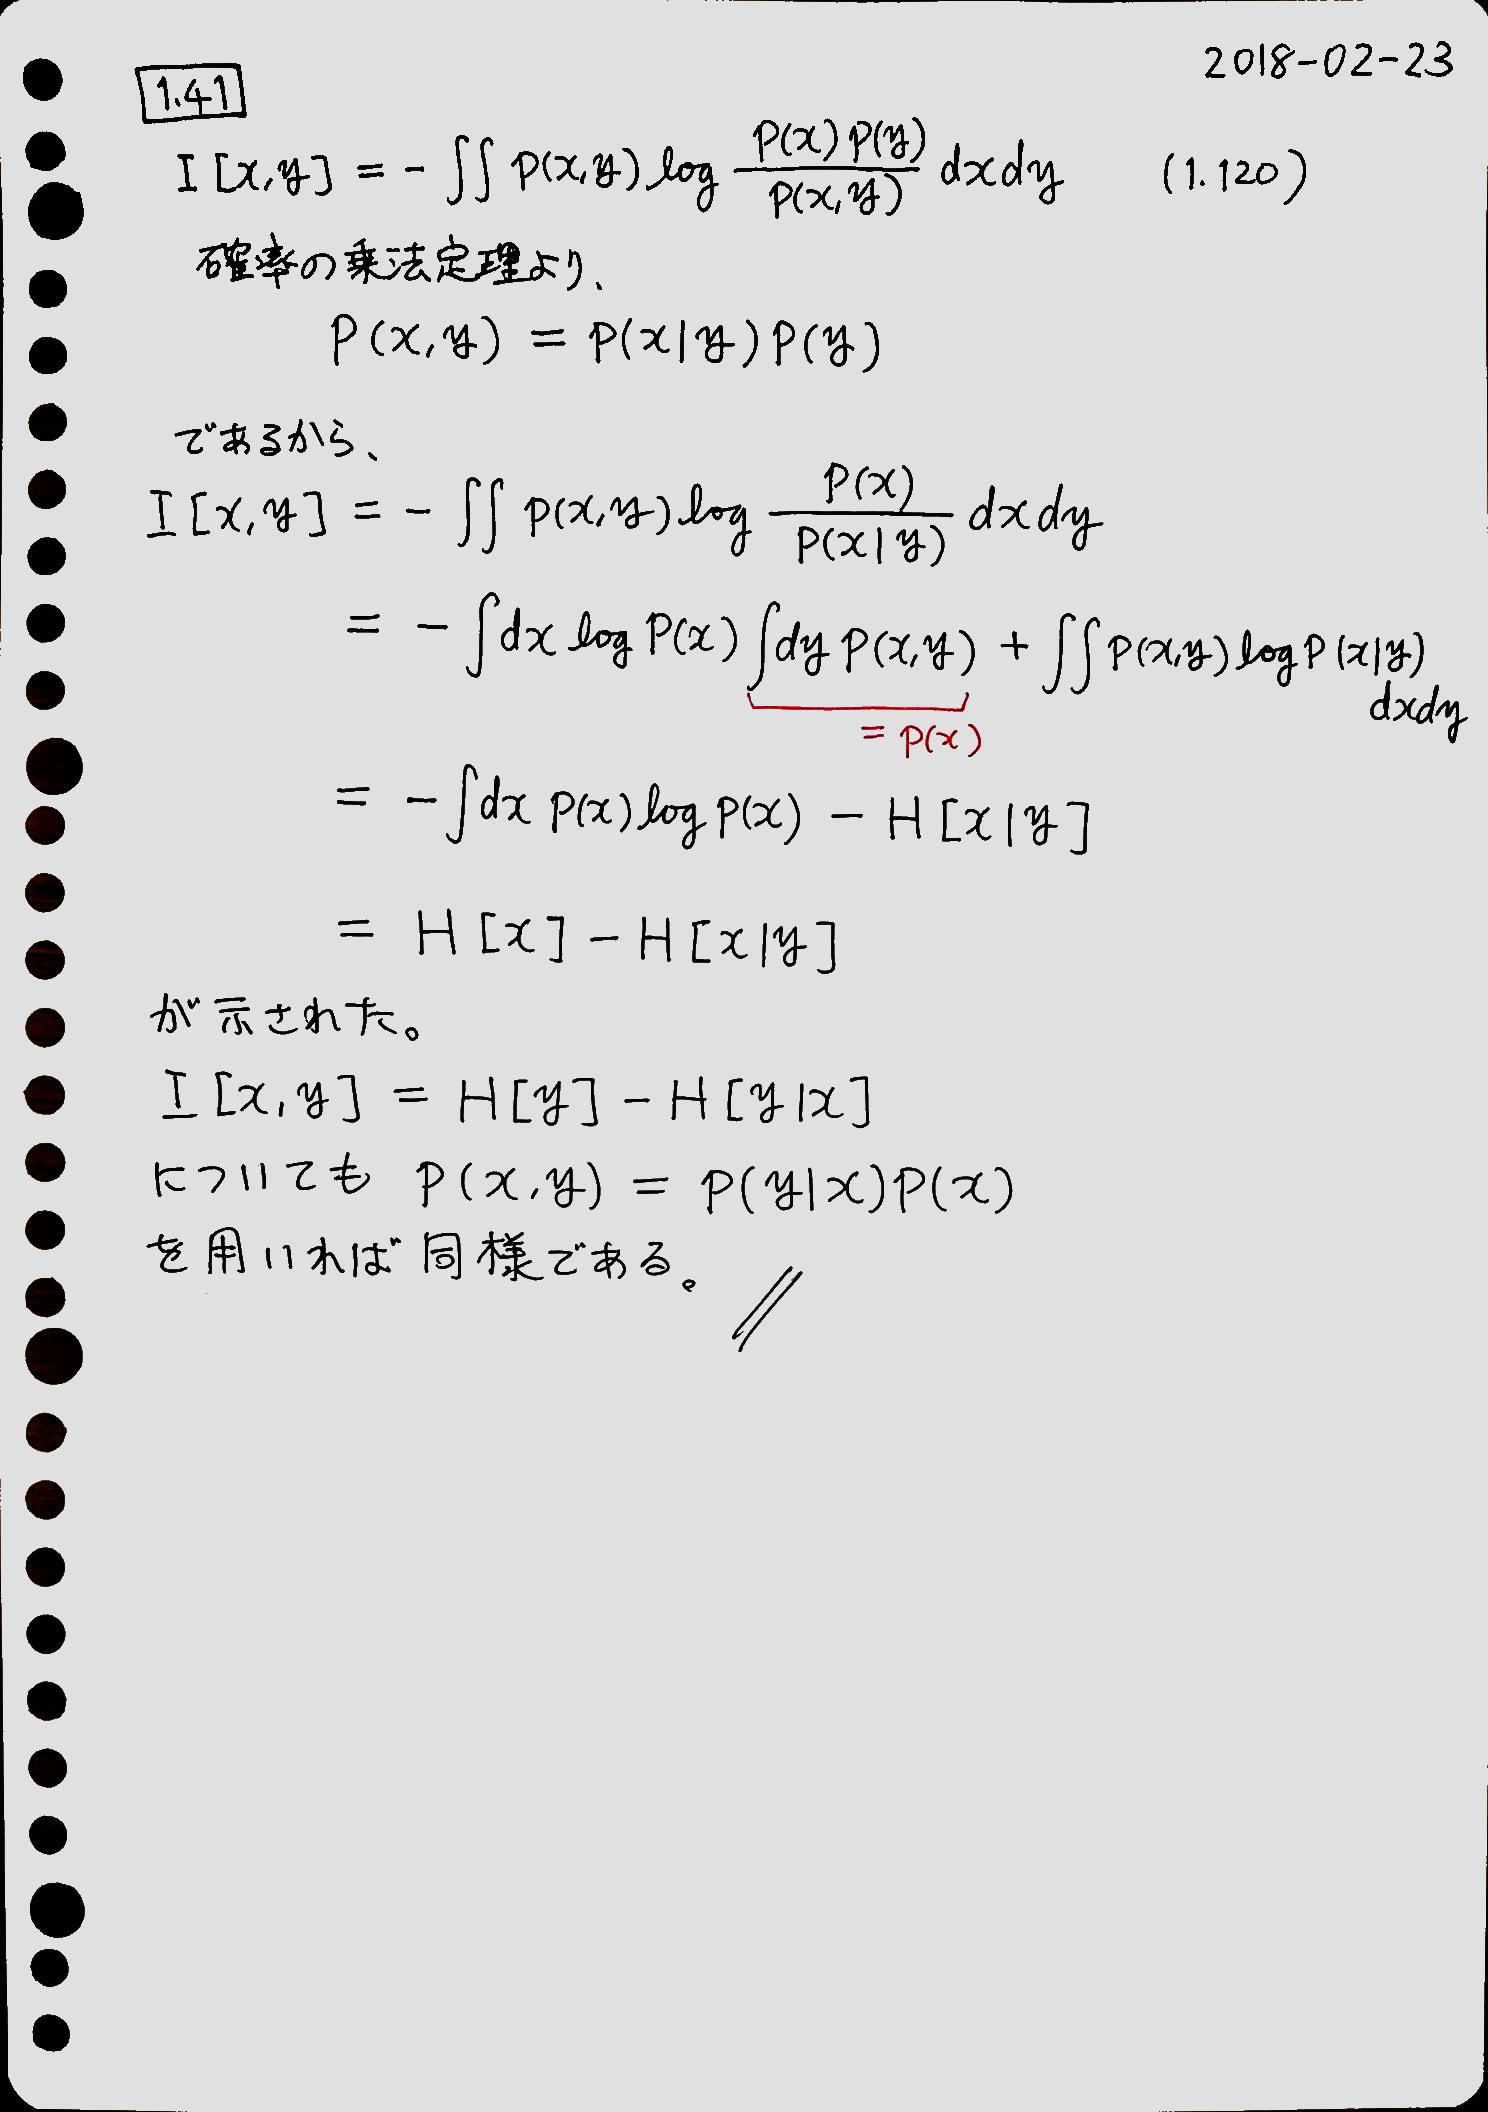 2018-02-23
1.41
I[x,y] = - ∫∫ P(x,y) log P(x)P(y)/P(x,y) dxdy (1.120)
確率の乗法定理より、
P(x,y) = P(x|y)P(y)
であるから、
I[x,y] = - ∫∫ P(x,y) log P(x)/P(x|y) dxdy
= - ∫dx log P(x) ∫dy P(x,y) + ∫∫ P(x,y) log P(x|y) dxdy
= P(x)
= - ∫dx P(x) log P(x) - H[x|y]
= H[x] - H[x|y]
が示された。
I[x,y] = H[y] - H[y|x]
についても P(x,y) = P(y|x)P(x)
を用いれば同様である。